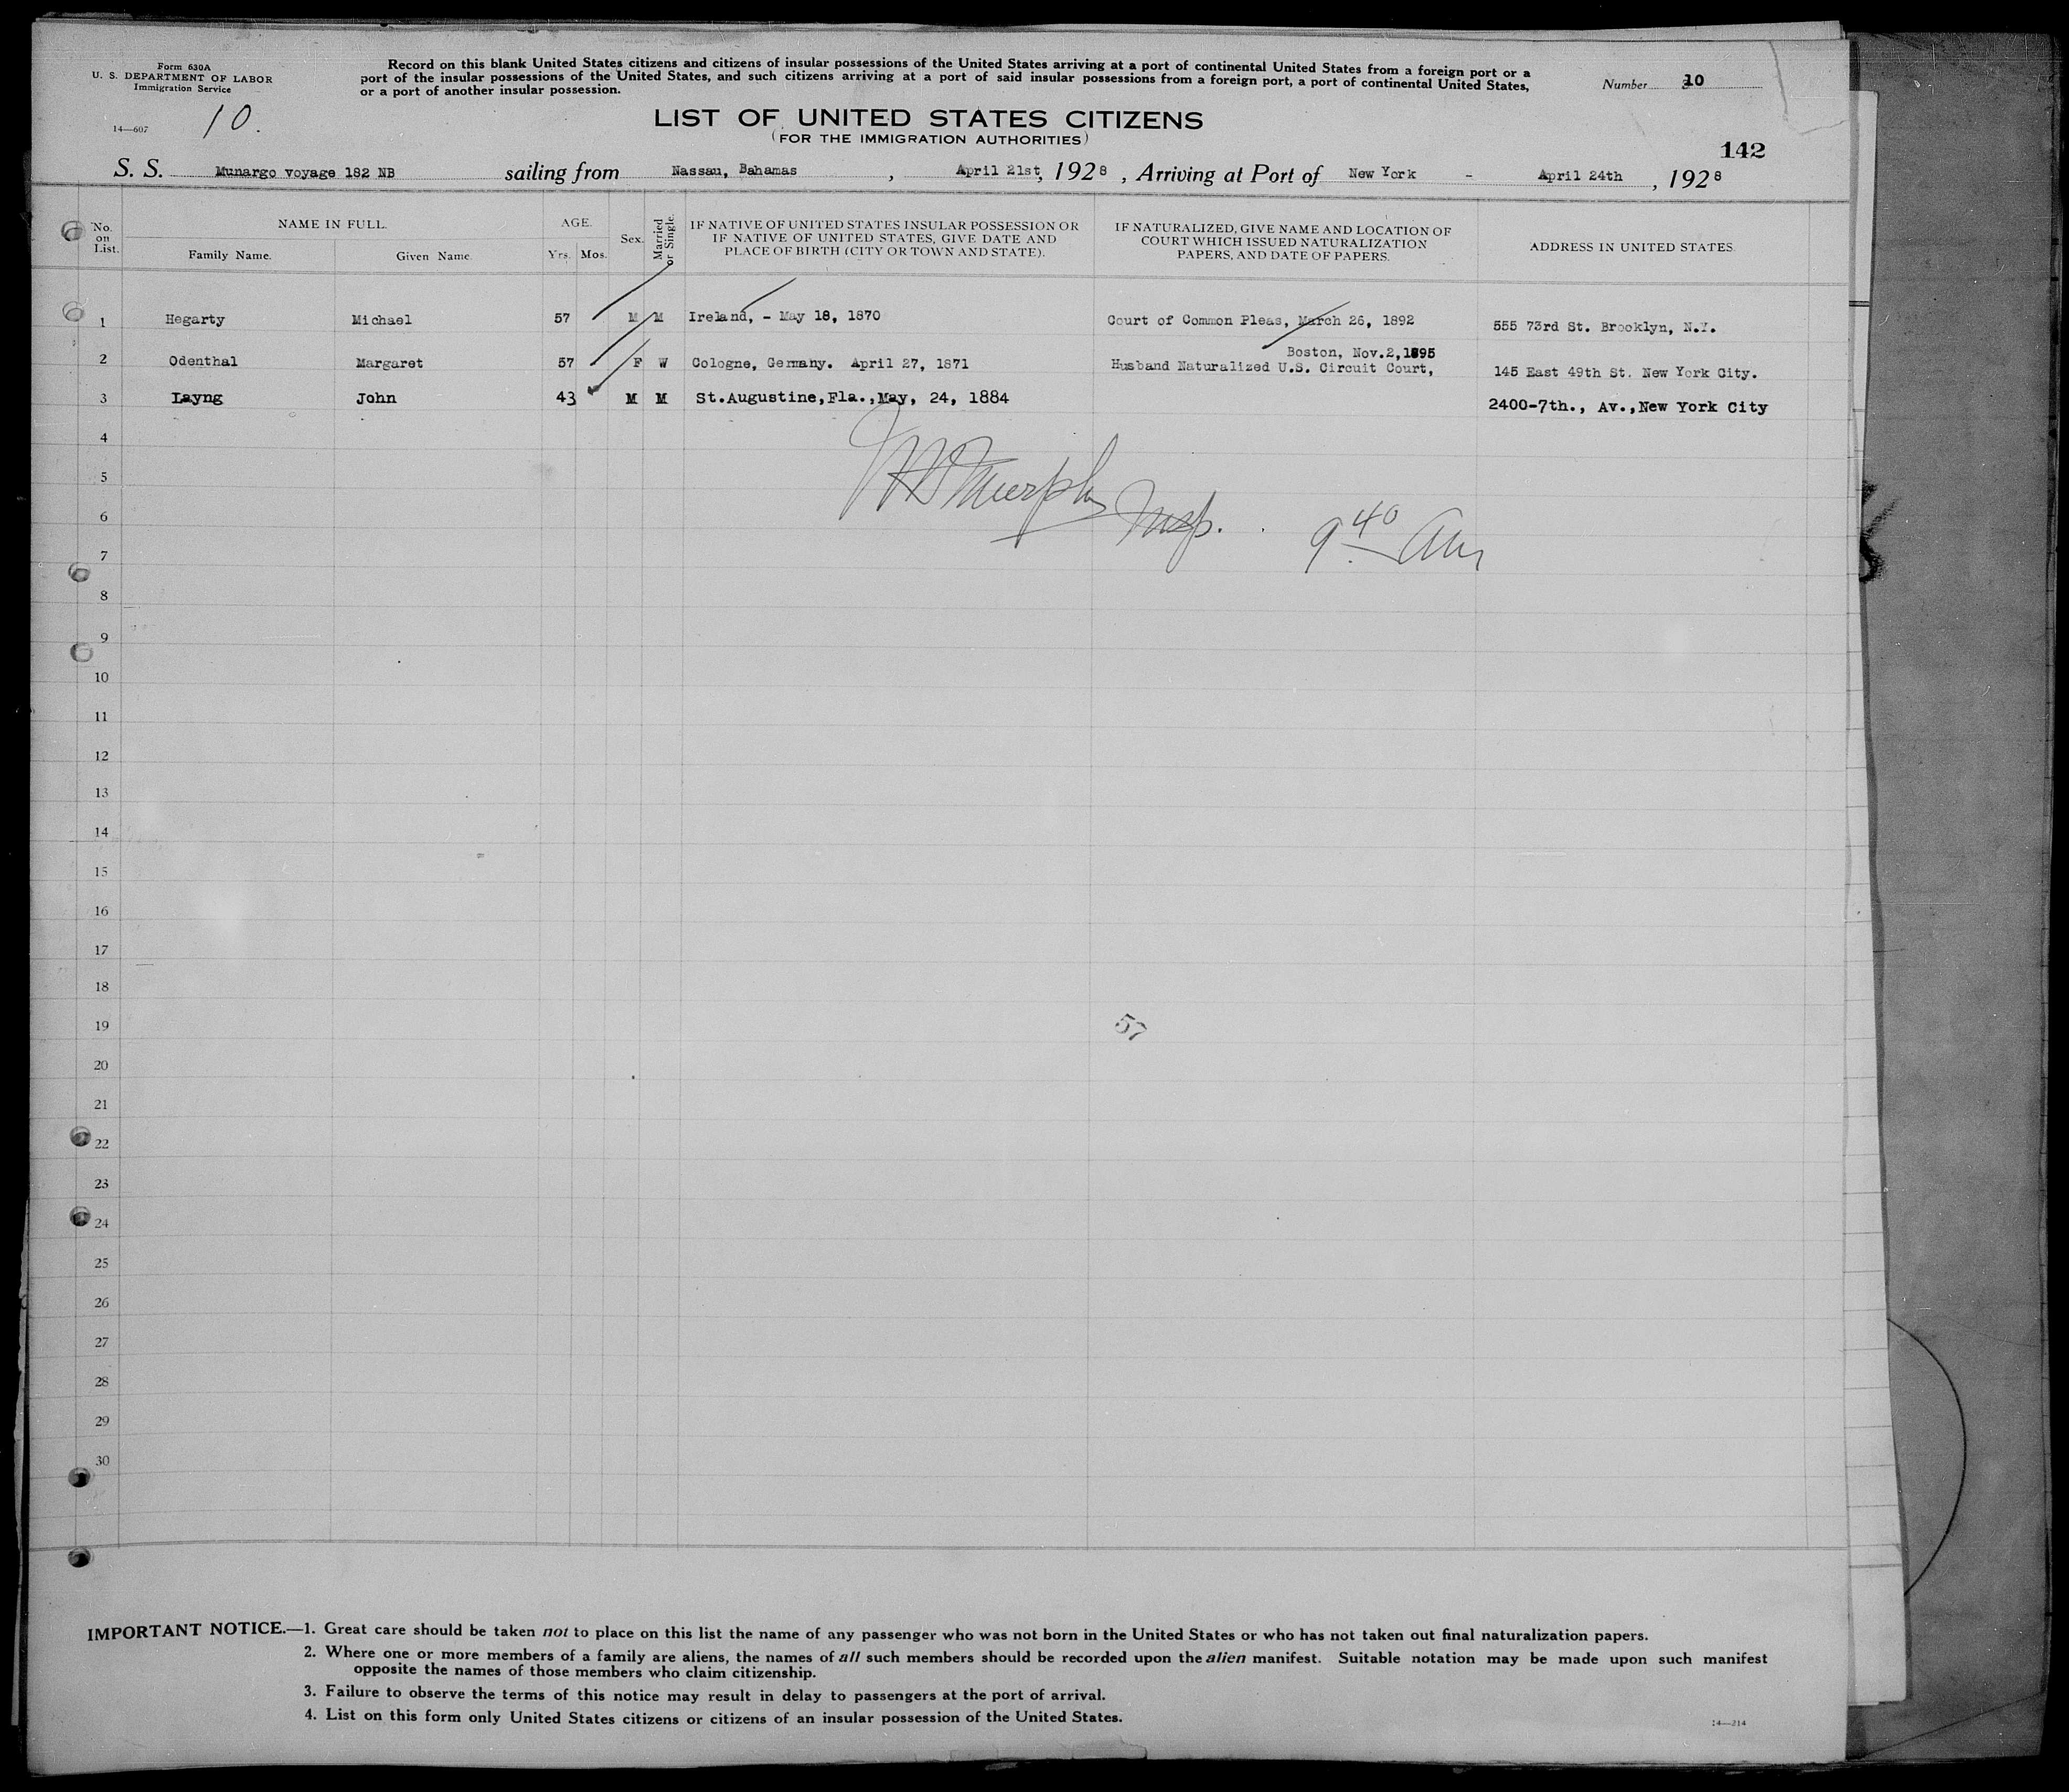 Form 630A
U. S. DEPARTMENT OF LABOR
Immigration Service
14—607
10.
Record on this blank United States citizens and citizens of insular possessions of the United States arriving at a port of continental United States from a foreign port or a
port of the insular possessions of the United States, and such citizens arriving at a port of said insular possessions from a foreign port, a port of continental United States,
or a port of another insular possession.
Number 10
LIST OF UNITED STATES CITIZENS
(FOR THE IMMIGRATION AUTHORITIES)
142
S. S. Munargo voyage 182 NB sailing from Nassau, Bahamas , April 21st, 1928 , Arriving at Port of New York - April 24th , 1928
No. on List.
NAME IN FULL.
Family Name.
Given Name.
AGE.
Yrs. Mos.
Sex.
Married or Single.
IF NATIVE OF UNITED STATES INSULAR POSSESSION OR
IF NATIVE OF UNITED STATES, GIVE DATE AND
PLACE OF BIRTH (CITY OR TOWN AND STATE).
IF NATURALIZED, GIVE NAME AND LOCATION OF
COURT WHICH ISSUED NATURALIZATION
PAPERS, AND DATE OF PAPERS.
ADDRESS IN UNITED STATES.
1 Hegarty Michael 57 M M Ireland, - May 18, 1870 Court of Common Pleas, March 26, 1892 555 73rd St. Brooklyn, N.Y.
Boston, Nov.2,1895
2 Odenthal Margaret 57 F W Cologne, Germany. April 27, 1871 Husband Naturalized U.S. Circuit Court, 145 East 49th St. New York City.
3 Layng John 43 M M St.Augustine,Fla.,May, 24, 1884 2400-7th., Av.,New York City
4
5
Murphy Insp. 9 40 Am
6
7
8
9
10
11
12
13
14
15
16
17
18
19
57
20
21
22
23
24
25
26
27
28
29
30
IMPORTANT NOTICE.—1. Great care should be taken not to place on this list the name of any passenger who was not born in the United States or who has not taken out final naturalization papers.
2. Where one or more members of a family are aliens, the names of all such members should be recorded upon the alien manifest. Suitable notation may be made upon such manifest
opposite the names of those members who claim citizenship.
3. Failure to observe the terms of this notice may result in delay to passengers at the port of arrival.
4. List on this form only United States citizens or citizens of an insular possession of the United States.
14—214